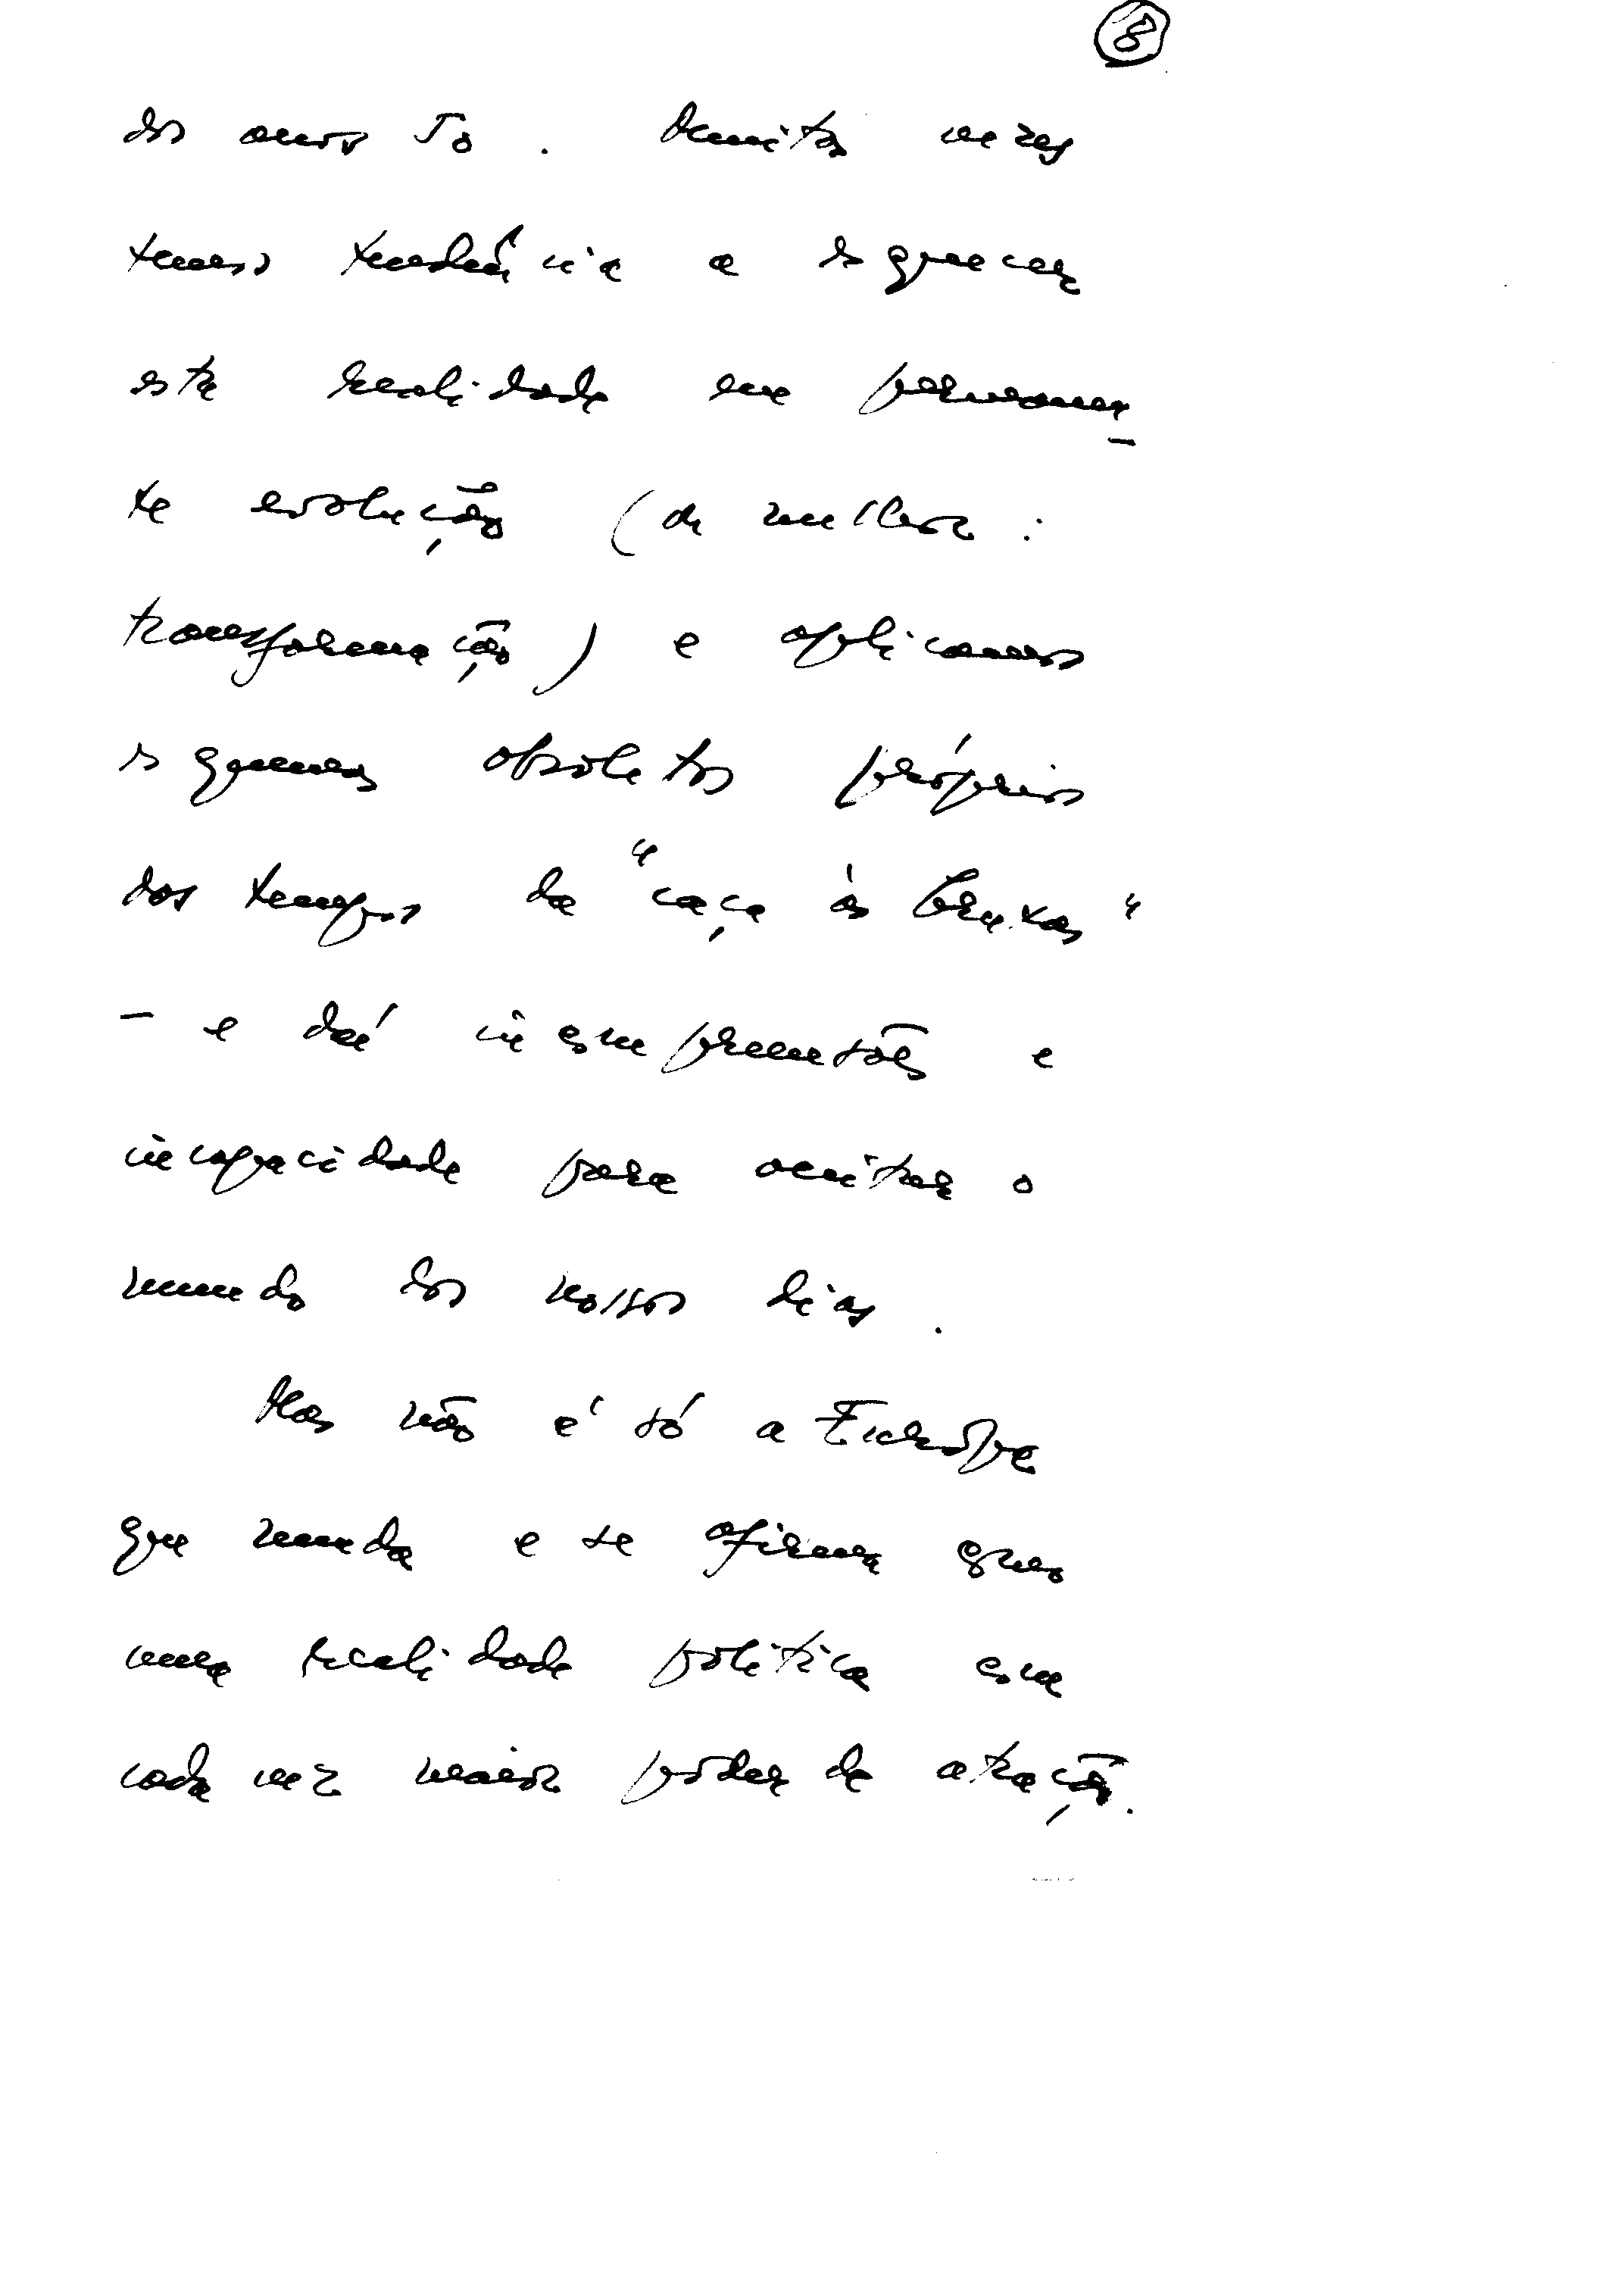 8
dos anos 50. Muitas vezes
temos tendência a esquecer
esta realidade em permanen-
te evolução (ou melhor:
transformação) e aplicamos
esquemas obsoletos próprios
dos tempos da "caça às bruxas"
- e daí incompreensões e
incapacidade para aceitar o
mundo dos nossos dias.
Mas não é só a Europa
que muda e se afirma como
uma realidade política com
cada vez maior poder de atração.